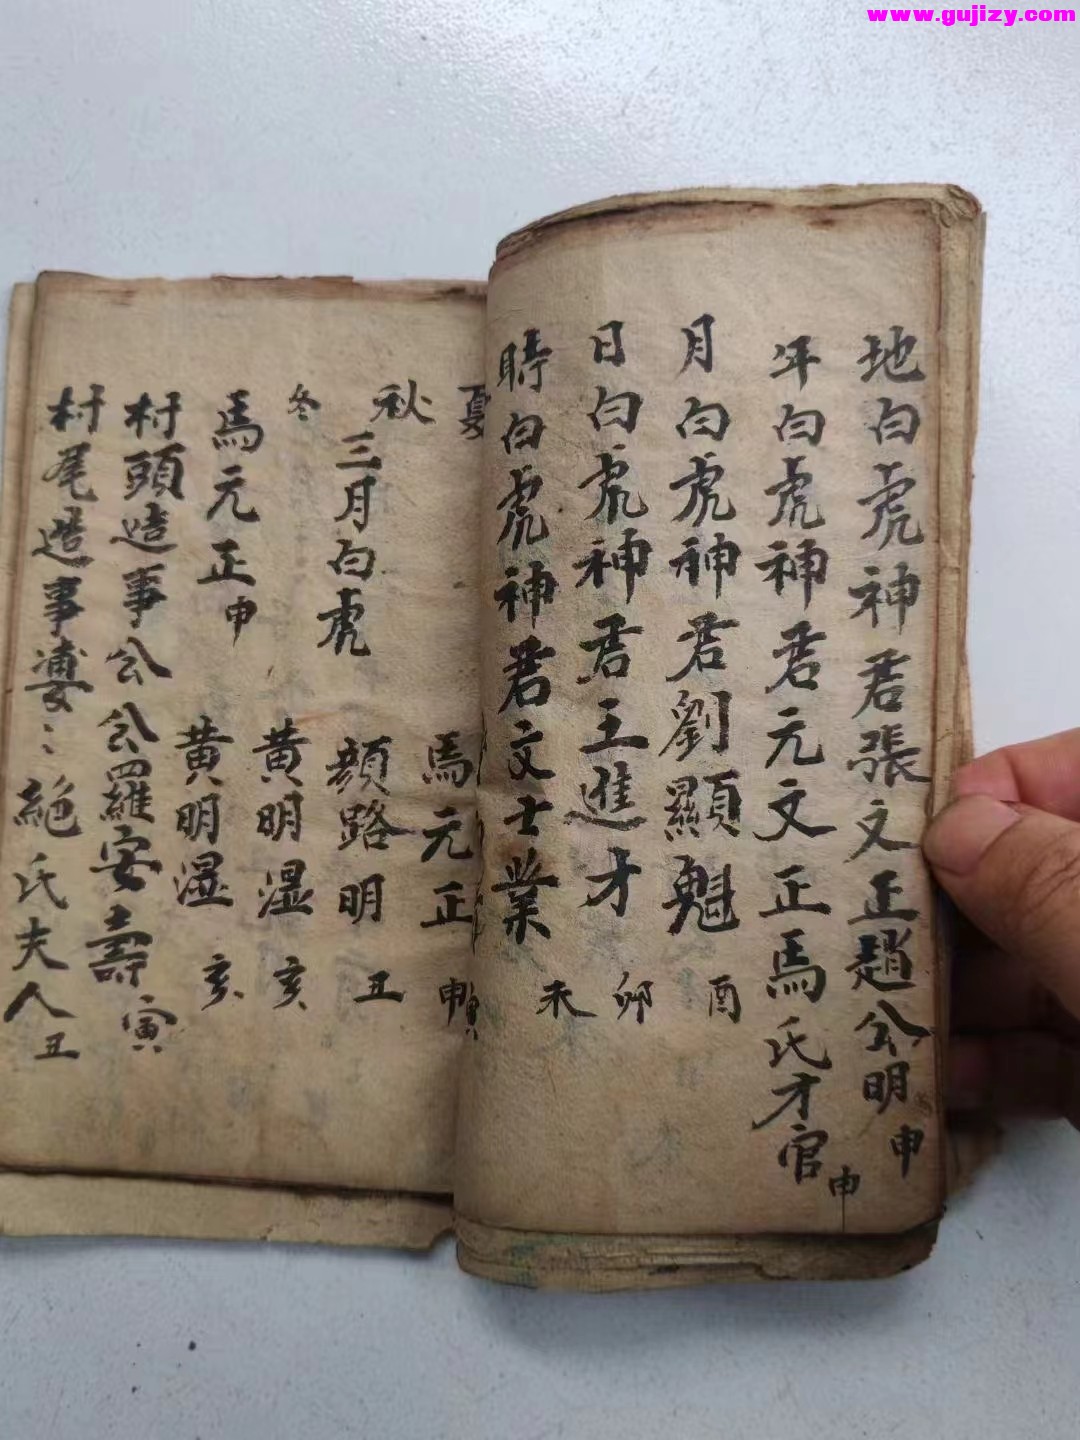 www.gujizy.com
地白虎神君張文正趙公明申
年白虎神君元文正馬氏才官申
月白虎神君劉顯魁酉
日白虎神君王進才卯
時白虎神君文士業未
夏 馬元正申
秋 三月白虎 顏路明丑
冬 黄明湿亥
馬元正申 黄明湿亥
村頭造事公公羅安壽寅
村尾造事婆〻絕氏夫人丑